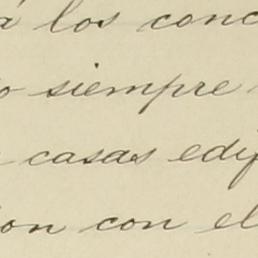 á los conc
o siempre
casas edif
ion con el